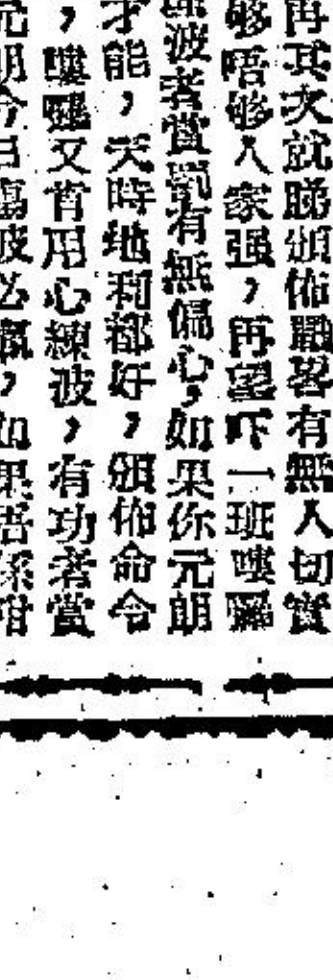 再其次就睇頒佈號畧有無人切實
够唔够人家强，再望吓一班嘍囉
波者賞罰有無偏心，如果你元朗
才能，天時地利都好，頒佈命令
，嘍囉又肯用心練波，有功者賞
元朗今日傷波必
，如果唔係咁